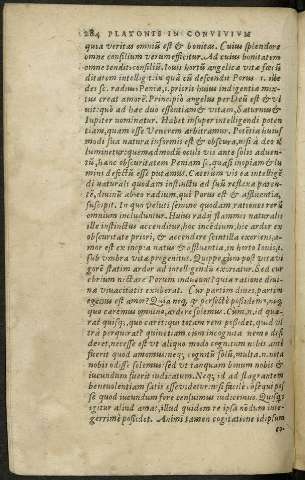 284 PLATONIS IN CONVIVIVM
quia veritas omniū est & bonitas. Cuius splendore
omne consilium verum efficitur. Ad cuius bonitatem
omne tendit consiliū. Iouis hortū angelicæ vitæ fœcū
ditatem intelligit: in quā cū descendit Porus .i. ille
dei sc. radius Penia, .i. prioris huius indigentia mix-
tus creat amorē. Principiò angelus per deū est & vi
uit: quo ad hæc duo essentiam & vitam, Saturnus &
Iupiter nominatur. Habet insuper intelligendi poten
tiam, quam esse Venerem arbitramur. Potētia huius
modi sua natura informis est & obscura, nisi à deo il
luminetur: quemadmodū oculi vis ante solis aduen-
tū, hanc obscuritatem Peniam sc. quasi inopiam & lu
minis defectū esse putamus. Cæterùm vis ea intelligē
di naturali quodam instinctu ad suū reflexa paren-
tē, diuinū ab eo radium, qui Porus est & affluentia,
suscipit. In quo veluti semine quodam, rationes rerū
omnium includuntur. Huius radij flammis naturalis
ille instinctus accenditur, hoc incēdium, hic ardor ex
obscuritate priori, & accendente scintilla exoriens, a-
mor est ex inopia natus & affluentia, in horto Iouis,
sub vmbra vitæ progenitus. Quippe quū post vitæ vi
gorē statim ardor ad intelligendū exoriatur. Sed cur
ebrium nectare Porum inducunt? quia ratione diui-
na viuacitatis exuberat. Cur partim diues, partim
egenus est amor? Quia neq; quæ perfectè possidem⁹, neq;
quæ caremus omnino, ardere solemus. Cum, n, id quæ-
rat quisq;, quo caret: qui totam rem possidet, quid vl
tra perquirat? quinetiam cum incognita nemo desi
deret, necesse est vt aliquo modo cognitum nobis ant
fuerit quod amemus: neq; cognitū solū, multa, n, nota
nobis odisse solemus: sed vt tanquam bonum nobis &
iucundum fuerit iudicatum. Neq; id ad flagrantem
beneuolentiam satis esse videtur. nisi facilè assequi pos
se quod iucundum fore censuimus iudicemus. Quisq;
igitur aliud amat, illud quidem re ipsa nōdum inte-
gerrimè possidet. Animi tamen cogitatione id ipsum
co-